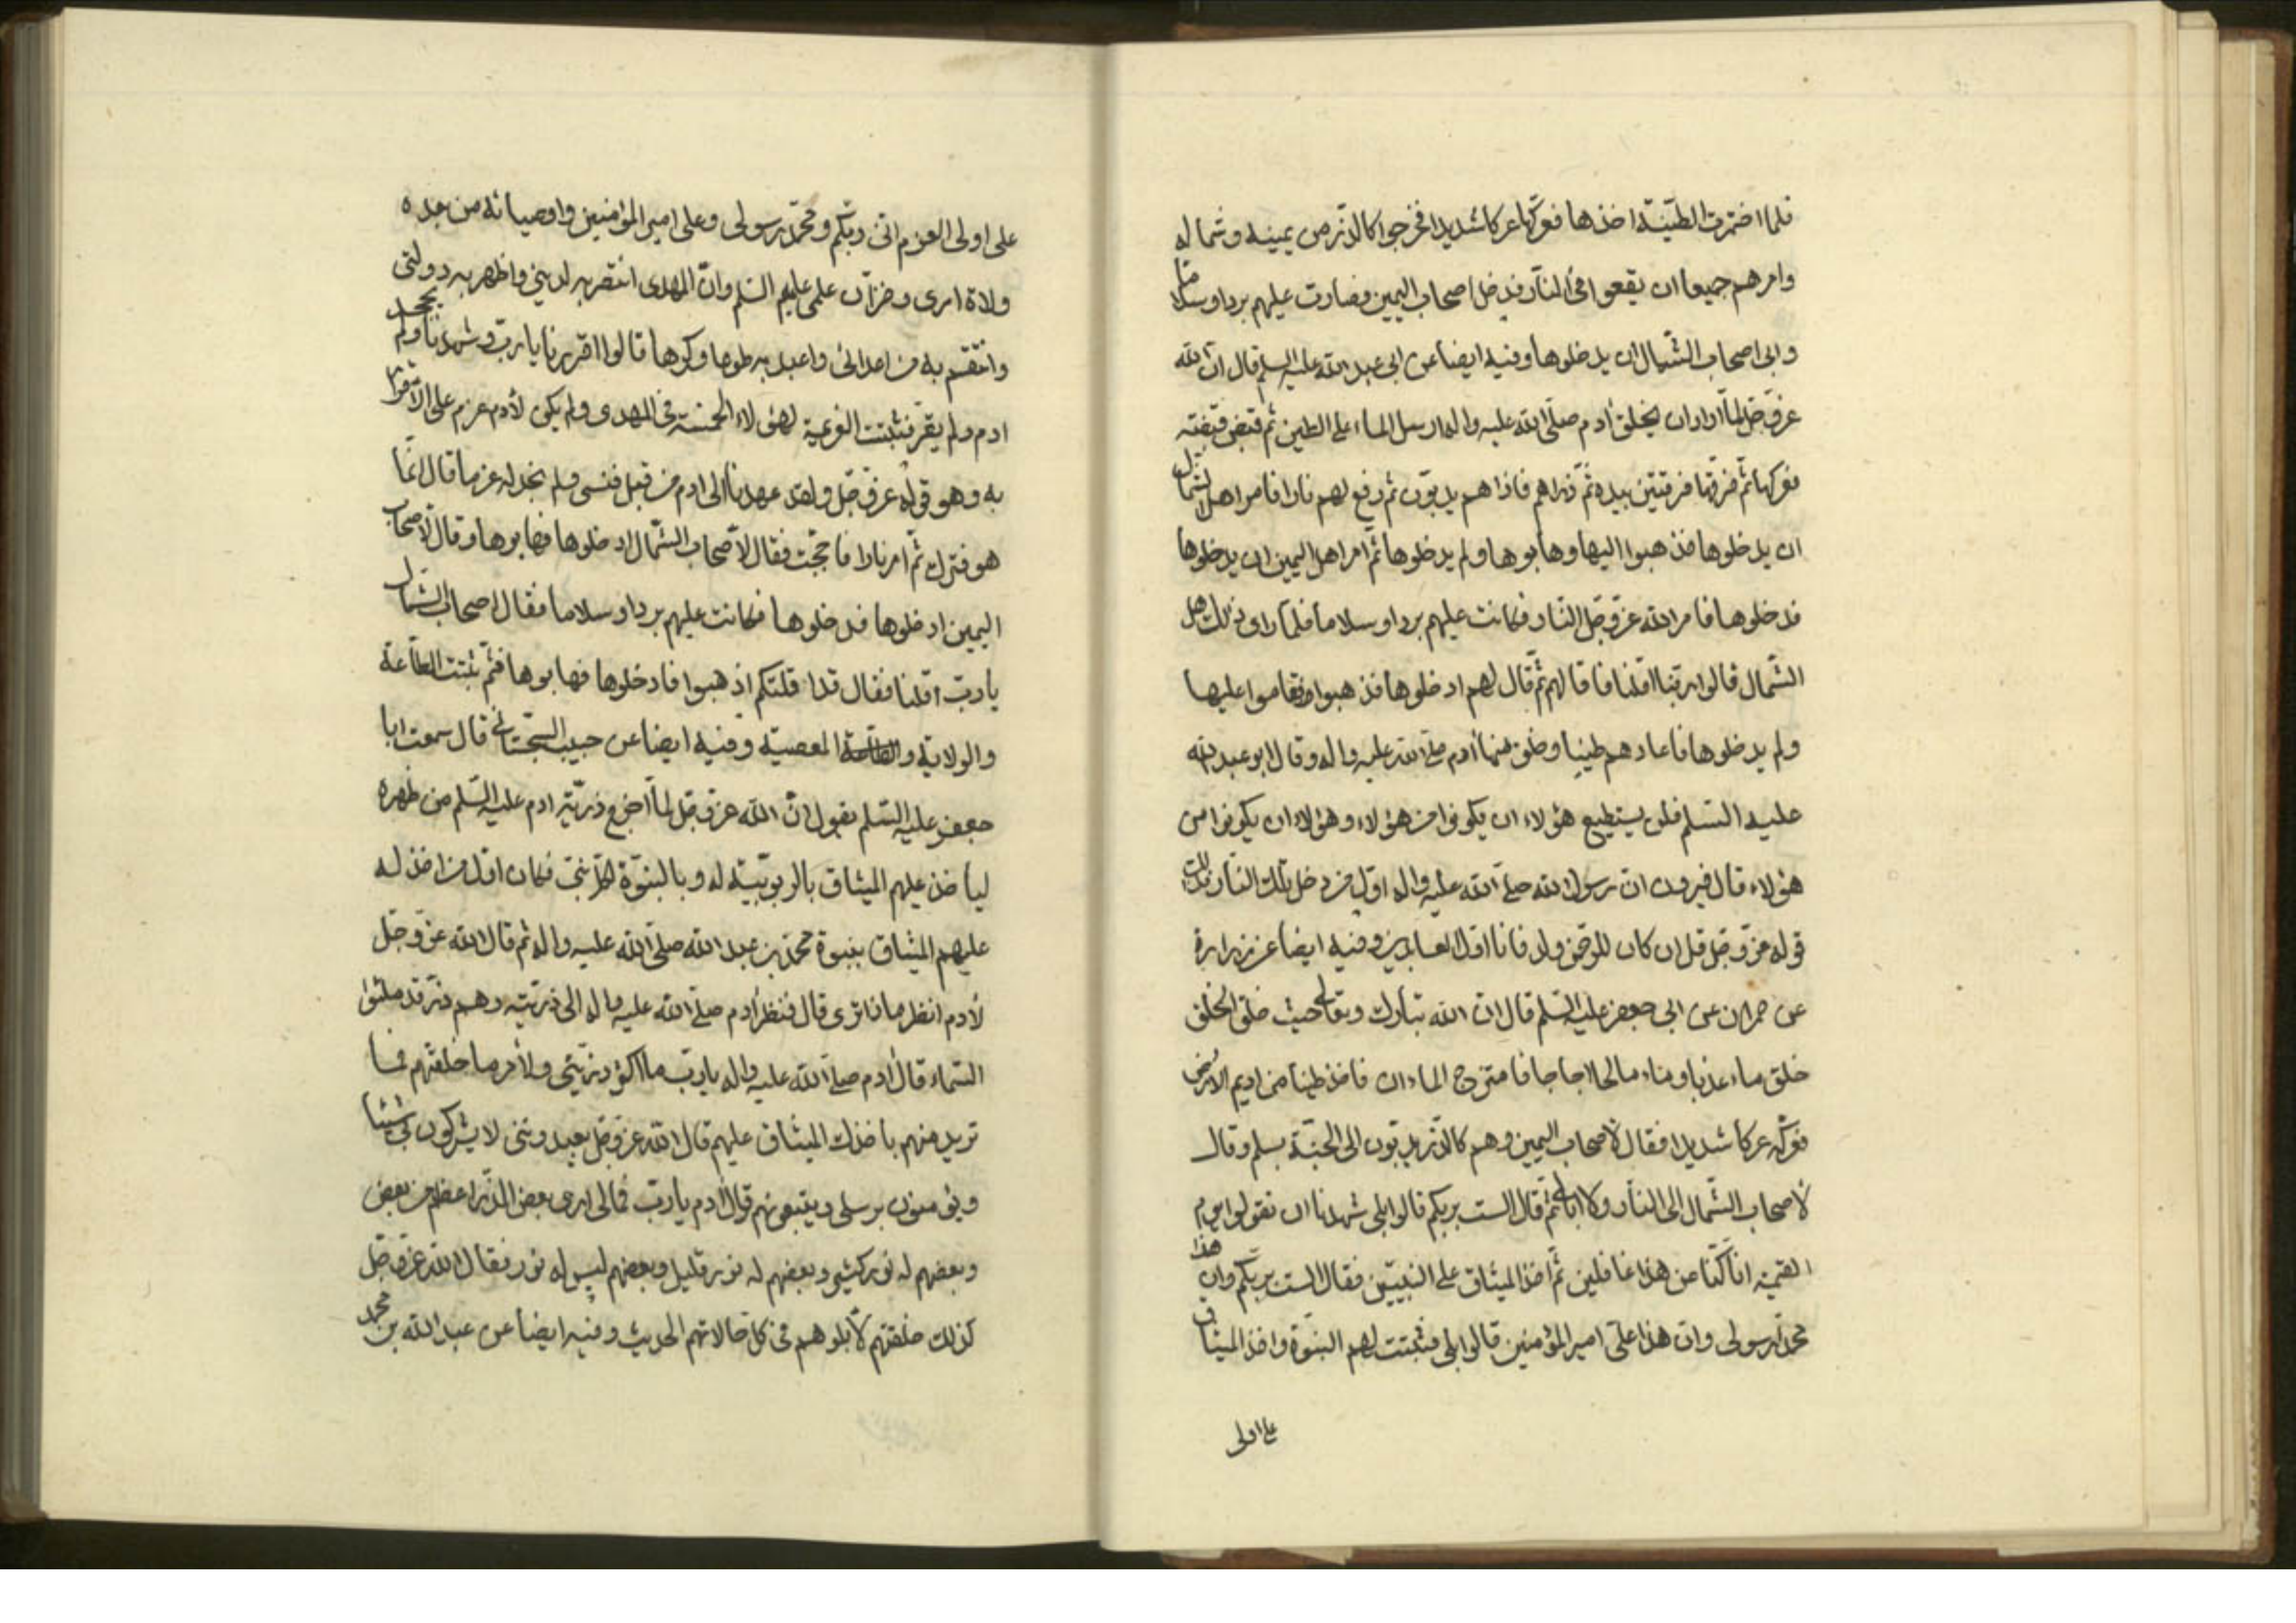 فلما اختمرت الطينة اخذها فعركها عركا شديدا فخرجوا كالذر من يمينه وشماله
وامرهم جميعا ان يقعوا في النار فدخل اصحاب اليمين فصارت عليهم بردا وسلاما
وابى اصحاب الشمال ان يدخلوها وفيه ايضا عن ابي عبد الله عليه السلم قال ان الله
عز وجل لما اراد ان يخلق ادم صلى الله عليه واله ارسل الماء على الطين ثم قبض قبضة
فعركها ثم فرقها فرقتين بيده ثم ذراهم فاذا هم يدبون ثم رفع لهم نارا فامر اهل الشمال
ان يدخلوها فذهبوا اليها وهابوها ولم يدخلوها ثم امر اهل اليمين ان يدخلوها
فدخلوها فامر الله عز وجل النار فكانت عليهم بردا وسلاما فلما راى ذلك اهل
الشمال قالوا ربنا اقلنا فاقالهم ثم قال لهم ادخلوها فذهبوا وقاموا عليها
ولم يدخلوها فاعادهم طينا وخلق منها ادم صلى الله عليه واله وقال ابو عبد الله
عليه السلم فلن يستطيع هؤلاء ان يكونوا من هؤلاء وهؤلاء ان يكونوا من
هؤلاء قال فيرون ان رسول الله صلى الله عليه واله اول من دخل تلك النار فذلك
قوله عز وجل قل ان كان للرحمن ولد فانا اول العابدين وفيه ايضا عن زرارة
عن حمران عن ابي جعفر عليه السلم قال ان الله تبارك وتعالى حيث خلق الخلق
خلق ماء عذبا وماء مالحا اجاجا فامتزج الماءان فاخذ طينا من اديم الارض
فعركه عركا شديدا فقال لأصحاب اليمين وهم كالذر يدبون الى الجنة بسلم وقال
لأصحاب الشمال الى النار ولا ابالي ثم قال الست بربكم قالوا بلى شهدنا ان تقولوا يوم
القيمة انا كنا عن هذا غافلين ثم اخذ الميثاق على النبيين فقال الست بربكم وان هذا
محمد رسولي وان هذا علي امير المؤمنين قالوا بلى فثبتت لهم النبوة واخذ الميثاق
على اولى
على اولى العزم انني ربكم ومحمد رسولي وعلى امير المؤمنين واوصيائه من بعده
ولاة امري وخزان علمي عليهم السلم وان المهدي انتصر به لديني واظهر به دولتي
وانتقم به من اعدائي واعبد به طوعا وكرها قالوا اقررنا يا رب وشهدنا ولم يجحد
ادم ولم يقر فثبتت العزيمة لهؤلاء الخمسة في المهدي ولم يكن لأدم عزم على الأقرار
به وهو قوله عز وجل ولقد عهدنا الى ادم من قبل فنسى ولم نجد له عزما قال انما
هو فترك ثم امر نارا فاججت فقال لأصحاب الشمال ادخلوها فهابوها وقال لأصحاب
اليمين ادخلوها فدخلوها فكانت عليهم بردا وسلاما فقال اصحاب الشمال
يا رب اقلنا فقال قد اقلتكم اذهبوا فادخلوها فهابوها فثم ثبتت الطاعة
والولاية و المعصية وفيه ايضا عن حبيب السجستاني قال سمعت ابا
جعفر عليه السلم يقول ان الله عز وجل لما اخرج ذرية ادم عليه السلم من ظهره
ليأخذ عليهم الميثاق بالربوبية له وبالنبوة لكل نبي فكان اول من اخذ له
عليهم الميثاق بنبوة محمد بن عبد الله صلى الله عليه واله ثم قال الله عز وجل
لأدم انظر ماذا ترى قال فنظر ادم صلى الله عليه واله الى ذريته وهم ذر قد ملئوا
السماء قال ادم صلى الله عليه واله يا رب ما اكثر ذريتي ولأمر ما خلقتهم فما
تريد منهم باخذك الميثاق عليهم قال الله عز وجل يعبدونني لا يشركون بي شيئا
ويؤمنون برسلي ويتبعونهم قال ادم يا رب فمالي ارى بعض الذر اعظم من بعض
وبعضهم له نور كثير وبعضهم له نور قليل وبعضهم ليس له نور فقال الله عز وجل
كذلك خلقتهم لأبلوهم في كل حالاتهم الحديث وفيه ايضا عن عبد الله بن محمد